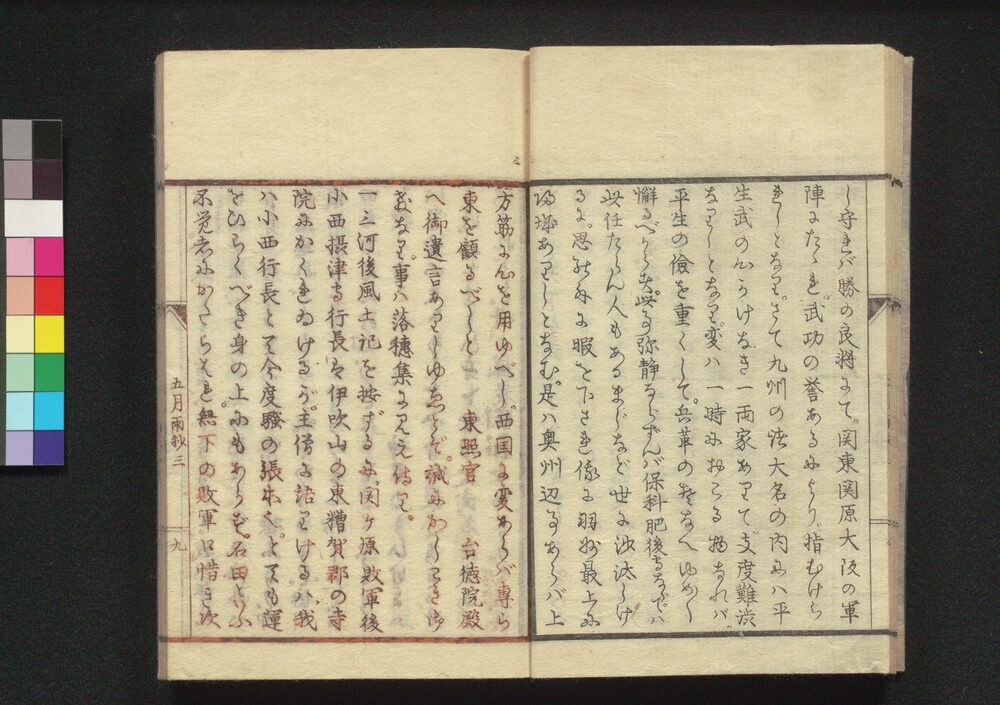 し守れバ勝の良将にて。関東関原大阪の軍
陣にたゝれ。武功の誉あるによりり。指むけら
れしとなり。さて九州の諸大名の内にハ平
生武の心かけなき一両家ありて支度難渋
なりしとなり。変ハ一時におこる物なれバ。
平生の倹を重くして。兵革のそなへゆめ〳〵
懈るべからず。此守弥静ならずんバ保科肥後守ならでハ
此任たらん人もあるまじなど世に沙汰しけ
るに。思ひ外に暇を下され候に羽州最上に
帰城ありしとなむ。是ハ奥州辺事あらバ上
方筋に心を用ゆべし。西国に変あらバ専ら
東を顧るべしと 東照宮 台徳院殿
へ御遺言ありしゆゑとぞ。誠にかしこき御
教なり。事ハ落穂集に見え侍り。
一三河後風土記を按ずるに。関ヶ原敗軍後
小西摂津守行長ハ伊吹山の東糟賀郡の寺
院にかくれゐけるが。主僧に語りけるハ。我
ハ小西行長とて今度騒の張本也。とても運
をひらくべき身の上にもあらず。石田といふ
不覚者にかたらはれ。無下の敗軍口惜き次
五月雨抄三
九